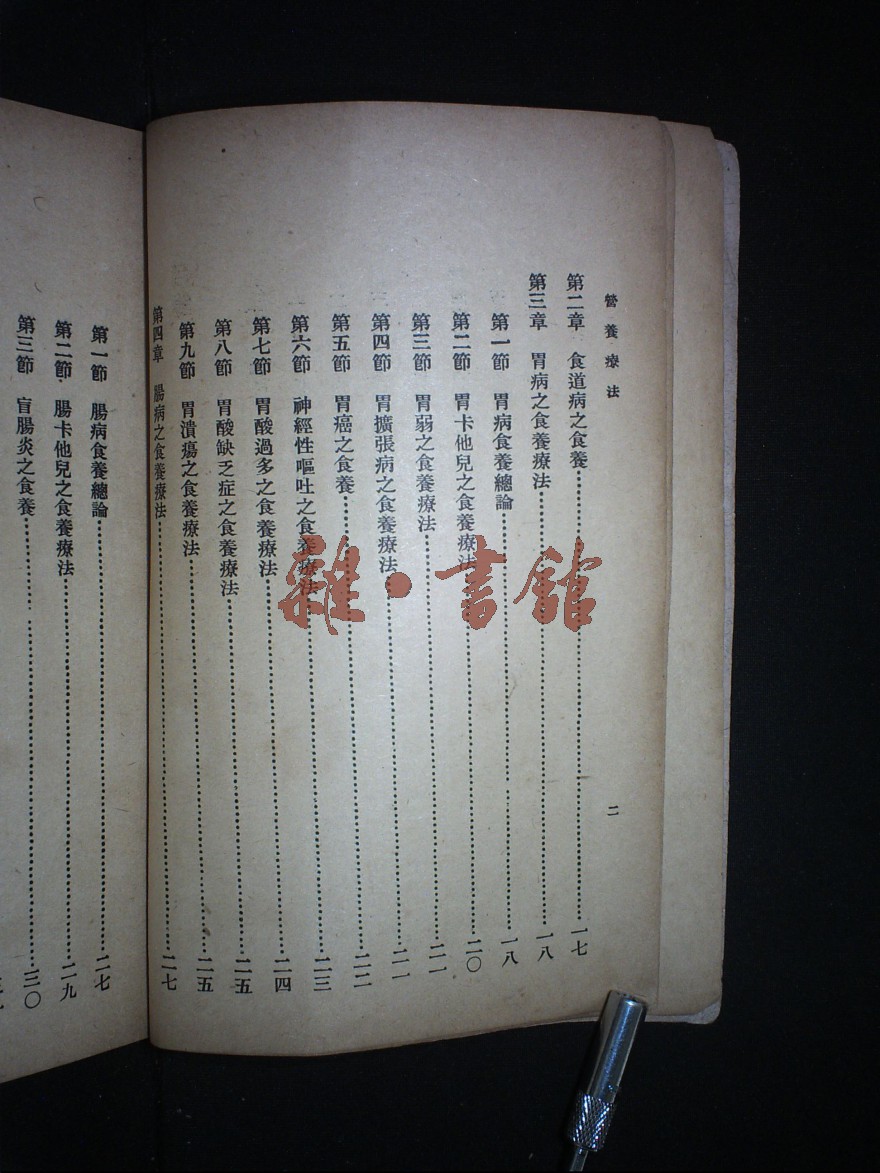 營養療法
二
第二章 食道病之食養⋯⋯一七
第三章 胃病之食養療法⋯⋯一八
第一節 胃病食養總論⋯⋯一八
第二節 胃卡他兒之食養療法⋯⋯二〇
第三節 胃弱之食養療法⋯⋯二一
第四節 胃擴張病之食養療法⋯⋯二一
第五節 胃癌之食養⋯⋯二二
第六節 神經性嘔吐之食養療法⋯⋯二三
第七節 胃酸過多之食養療法⋯⋯二四
第八節 胃酸缺乏症之食養療法⋯⋯二五
第九節 胃潰瘍之食養療法⋯⋯二五
第四章 腸病之食養療法⋯⋯二七
第一節 腸病食養總論⋯⋯二七
第二節 腸卡他兒之食養療法⋯⋯二九
第三節 盲腸炎之食養⋯⋯三〇
雜·書館